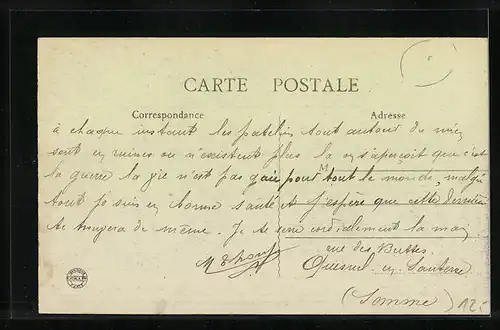 CARTE POSTALE
Correspondance Adresse
à chaque instant les patelins tout autour du mien
sont en ruines ou n'existent plus la on s'aperçoit que c'est
la guerre la vie n'est pas gaie pour tout le monde, malgré
tout je suis en bonne santé et j'espère que cette dernière
te trouvera de même. Je te serre cordialement la main
rue des Buttes
Quesnel en Santerre
(Somme)
12.-